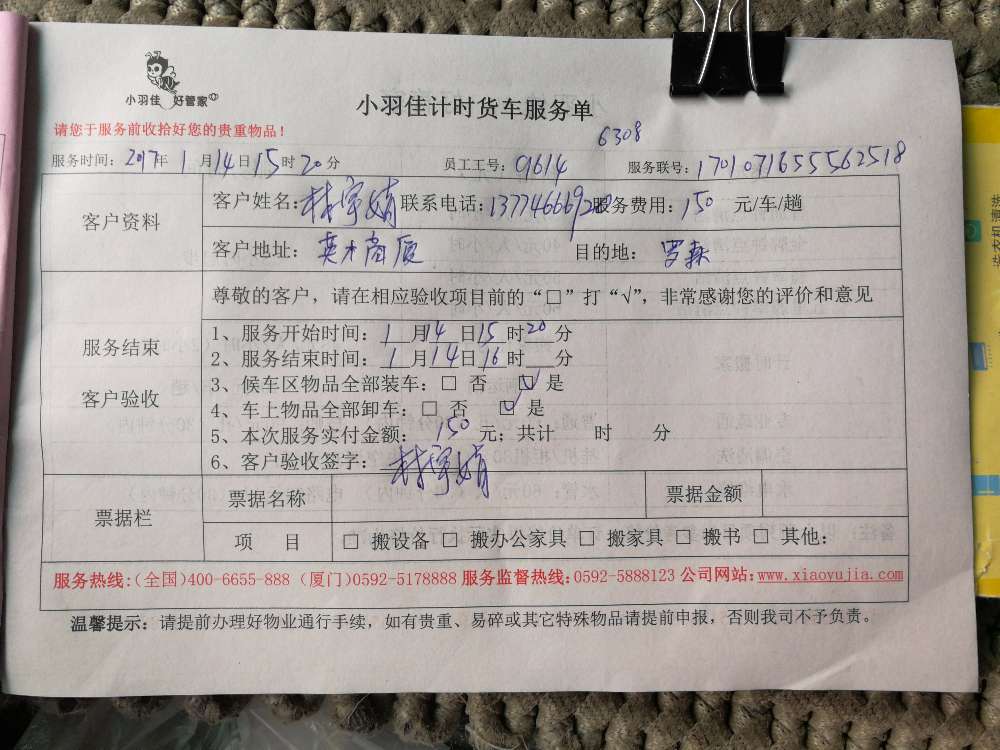 小羽佳 好管家
小羽佳计时货车服务单
请您于服务前收拾好您的贵重物品！
6308
服务时间：2017年 1月14日15时20分 员工工号：9614 服务联号：1701071655562518
客户资料
客户姓名：林宇娟 联系电话：13774666920 服务费用：150 元/车/趟
客户地址：英才商厦 目的地：罗森
尊敬的客户，请在相应验收项目前的“□”打“√”，非常感谢您的评价和意见
服务结束
客户验收
1、服务开始时间：1月14日15时20分
2、服务结束时间：1月14日16时 分
3、候车区物品全部装车：□ 否 ☑ 是
4、车上物品全部卸车：□ 否 ☑ 是
5、本次服务实付金额：150 元；共计 时 分
6、客户验收签字：林宇娟
票据栏
票据名称 票据金额
项 目 □ 搬设备 □ 搬办公家具 □ 搬家具 □ 搬书 □ 其他：
服务热线：(全国)400-6655-888 (厦门)0592-5178888 服务监督热线：0592-5888123 公司网站：www.xiaoyujia.com
温馨提示：请提前办理好物业通行手续，如有贵重、易碎或其它特殊物品请提前申报，否则我司不予负责。